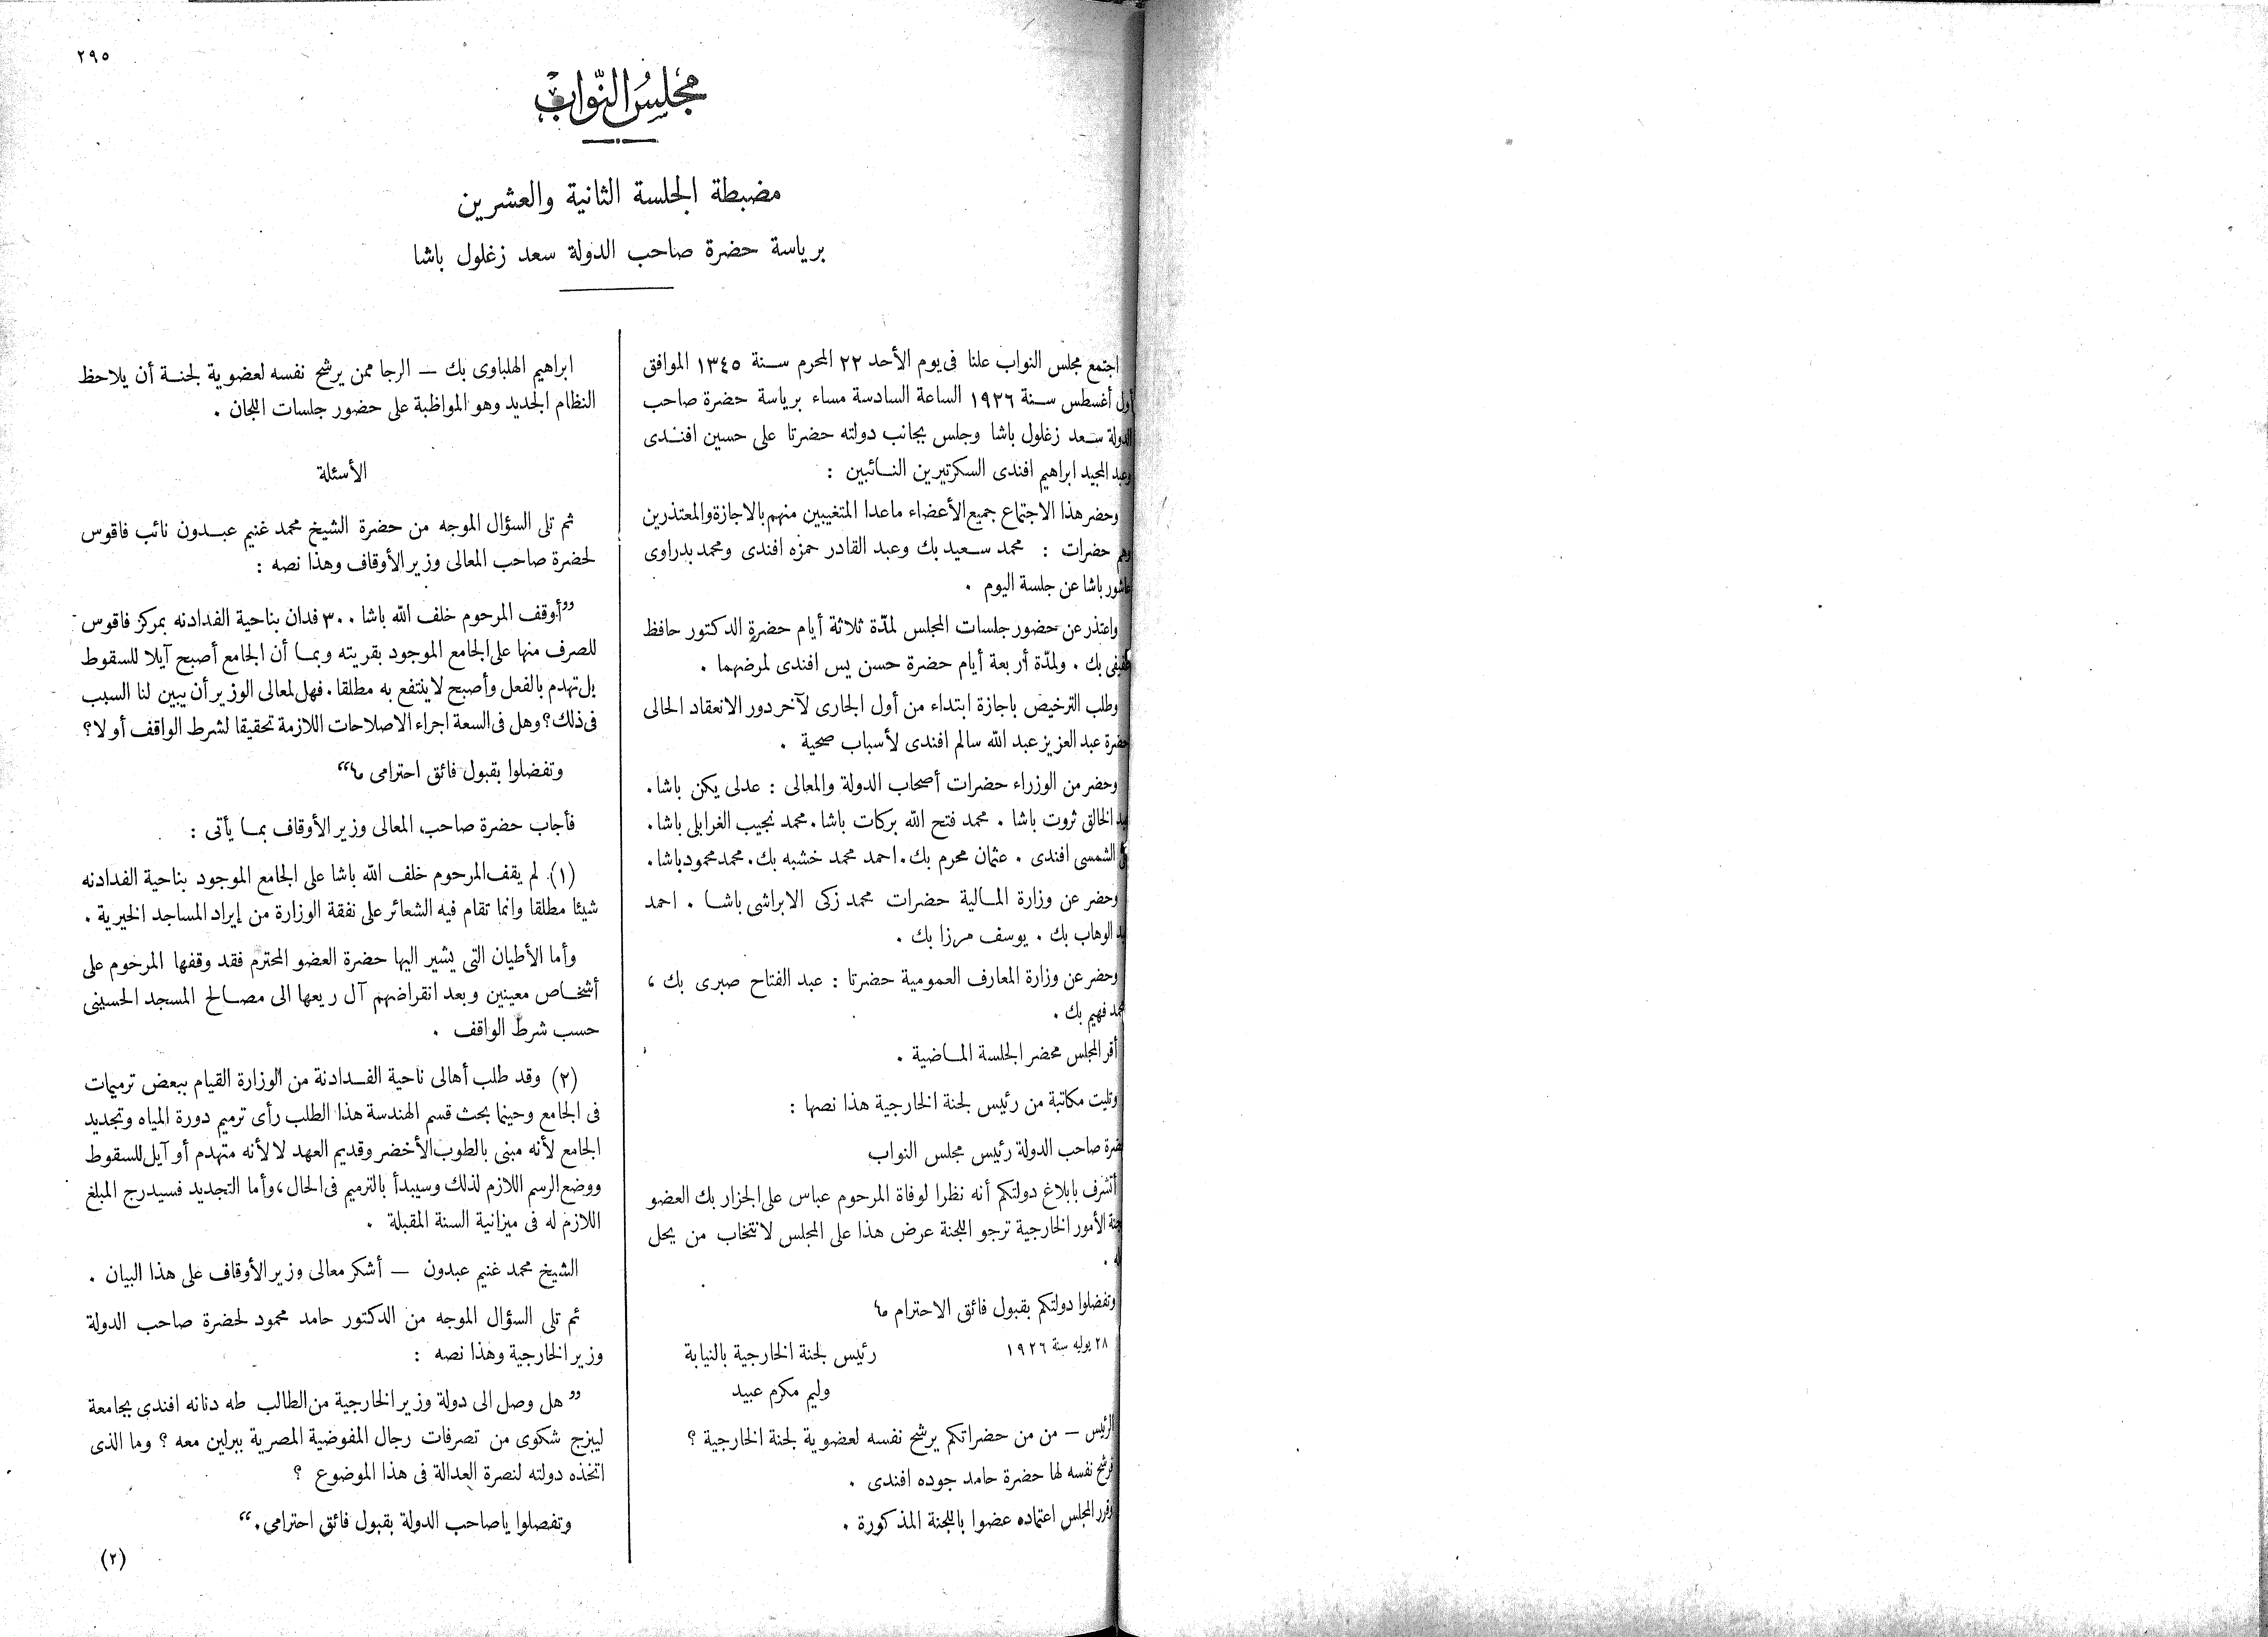 ٢٩٥
مجلس النواب
مضبطة الجلسة الثانية والعشرين
برياسة حضرة صاحب الدولة سعد زغلول باشا
اجتمع مجلس النواب علنا فى يوم الأحد ٢٢ المحرم سنة ١٣٤٥ الموافق
أول أغسطس سنة ١٩٢٦ الساعة السادسة مساء برياسة حضرة صاحب
الدولة سعد زغلول باشا وجلس بجانب دولته حضرتا على حسين افندى
وعبد المجيد ابراهيم افندى السكرتيرين النائبين :
وحضر هذا الاجتماع جميع الأعضاء ماعدا المتغيبين منهم بالاجازة والمعتذرين
وهم حضرات : محمد سعيد بك وعبد القادر حمزه افندى ومحمد بدراوى
عاشور باشا عن جلسة اليوم .
واعتذر عن حضور جلسات المجلس لمدّة ثلاثة أيام حضرة الدكتور حافظ
عفيفى بك . ولمدّة أربعة أيام حضرة حسن يس افندى لمرضهما .
وطلب الترخيص باجازة ابتداء من أول الجارى لآخر دور الانعقاد الحالى
حضرة عبد العزيز عبد الله سالم افندى لأسباب صحية .
وحضر من الوزراء حضرات أصحاب الدولة والمعالى : عدلى يكن باشا .
عبد الخالق ثروت باشا . محمد فتح الله بركات باشا . محمد نجيب الغرابلى باشا .
الشمسى افندى . عثمان محرم بك . احمد محمد خشبه بك . محمد محمود باشا .
وحضر عن وزارة المالية حضرات محمد زكى الابراشى باشا . احمد
عبد الوهاب بك . يوسف مرزا بك .
وحضر عن وزارة المعارف العمومية حضرتا : عبد الفتاح صبرى بك ،
محمد فهيم بك .
أقر المجلس محضر الجلسة الماضية .
وتليت مكاتبة من رئيس لجنة الخارجية هذا نصها :
حضرة صاحب الدولة رئيس مجلس النواب
أتشرف بابلاغ دولتكم أنه نظرا لوفاة المرحوم عباس على الجزار بك العضو
بلجنة الأمور الخارجية ترجو اللجنة عرض هذا على المجلس لانتخاب من يحل
.
وتفضلوا دولتكم بقبول فائق الاحترام ؎
٢٨ يوليه سنة ١٩٢٦
رئيس لجنة الخارجية بالنيابة
وليم مكرم عبيد
الرئيس — من من حضراتكم يرشح نفسه لعضوية لجنة الخارجية ؟
فرشح نفسه لها حضرة حامد جوده افندى .
وقرر المجلس اعتماده عضوا باللجنة المذكورة .
ابراهيم الهلباوى بك — الرجا ممن يرشح نفسه لعضوية لجنة أن يلاحظ
النظام الجديد وهو المواظبة على حضور جلسات اللجان .
الأسئلة
ثم تلى السؤال الموجه من حضرة الشيخ محمد غنيم عبدون نائب فاقوس
لحضرة صاحب المعالى وزير الأوقاف وهذا نصه :
”أوقف المرحوم خلف الله باشا ٣٠٠ فدان بناحية الفدادنه بمركز فاقوس
للصرف منها على الجامع الموجود بقريته وبما أن الجامع أصبح آيلا للسقوط
بل تهدم بالفعل وأصبح لاينتفع به مطلقا . فهل لمعالى الوزير أن يبين لنا السبب
فى ذلك ؟ وهل فى السعة اجراء الاصلاحات اللازمة تحقيقا لشرط الواقف أو لا ؟
وتفضلوا بقبول فائق احترامى ؎“
فأجاب حضرة صاحب المعالى وزير الأوقاف بما يأتى :
(١) لم يقف المرحوم خلف الله باشا على الجامع الموجود بناحية الفدادنه
شيئا مطلقا وانما تقام فيه الشعائر على نفقة الوزارة من إيراد المساجد الخيرية .
وأما الأطيان التى يشير اليها حضرة العضو المحترم فقد وقفها المرحوم على
أشخاص معينين وبعد انقراضهم آل ريعها الى مصالح المسجد الحسينى
حسب شرط الواقف .
(٢) وقد طلب أهالى ناحية الفدادنة من الوزارة القيام ببعض ترميمات
فى الجامع وحينما بحث قسم الهندسة هذا الطلب رأى ترميم دورة المياه وتجديد
الجامع لأنه مبنى بالطوب الأخضر وقديم العهد لا لأنه متهدم أو آيل للسقوط
ووضع الرسم اللازم لذلك وسيبدأ بالترميم فى الحال ، وأما التجديد فسيدرج المبلغ
اللازم له فى ميزانية السنة المقبلة .
الشيخ محمد غنيم عبدون — أشكر معالى وزير الأوقاف على هذا البيان .
ثم تلى السؤال الموجه من الدكتور حامد محمود لحضرة صاحب الدولة
وزير الخارجية وهذا نصه :
”هل وصل الى دولة وزير الخارجية من الطالب طه دنانه افندى بجامعة
ليبزج شكوى من تصرفات رجال المفوضية المصرية ببرلين معه ؟ وما الذى
اتخذه دولته لنصرة العدالة فى هذا الموضوع ؟
وتفضلوا ياصاحب الدولة بقبول فائق احترامى .“
(٢)